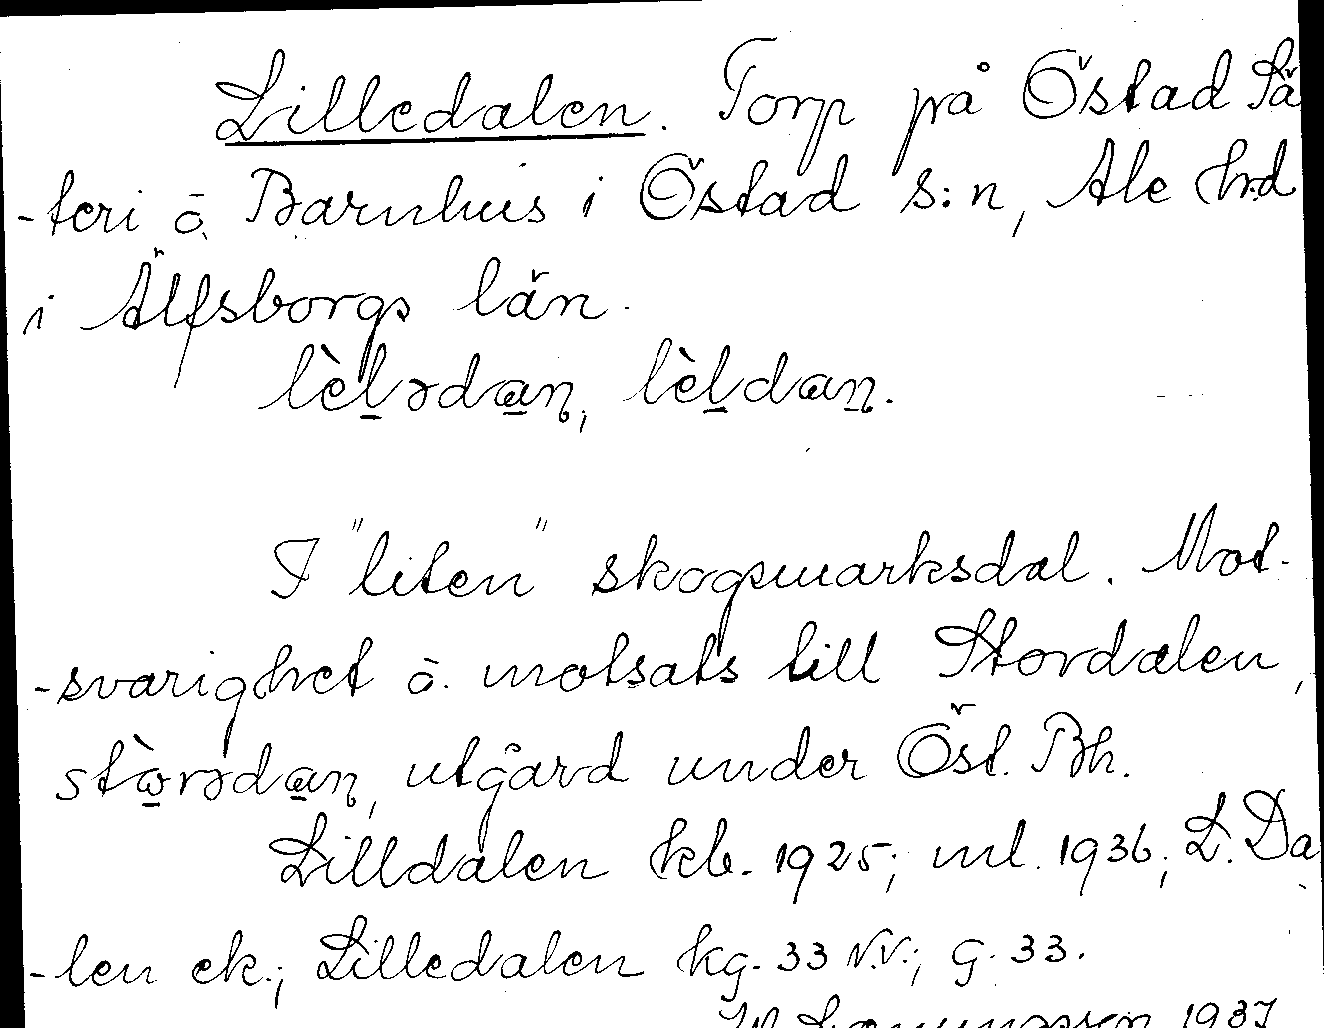 Lilledalen. Torp på Östad Sä
-teri o. Barnhus i Östad s:n, Ale hd
i Älfsborgs län.
lèləda̲ṉ, lèlda̲ṉ.
I "liten" skogsmarksdal. Mot-
-svarighet o. motsats till Stordalen,
stòrəda̲ṉ, utgård under Öst. Bh.
Lilldalen kb. 1925; ml. 1936; L. Da
-len ek.; Lilledalen kg. 33 N.V.; G. 33.
1937